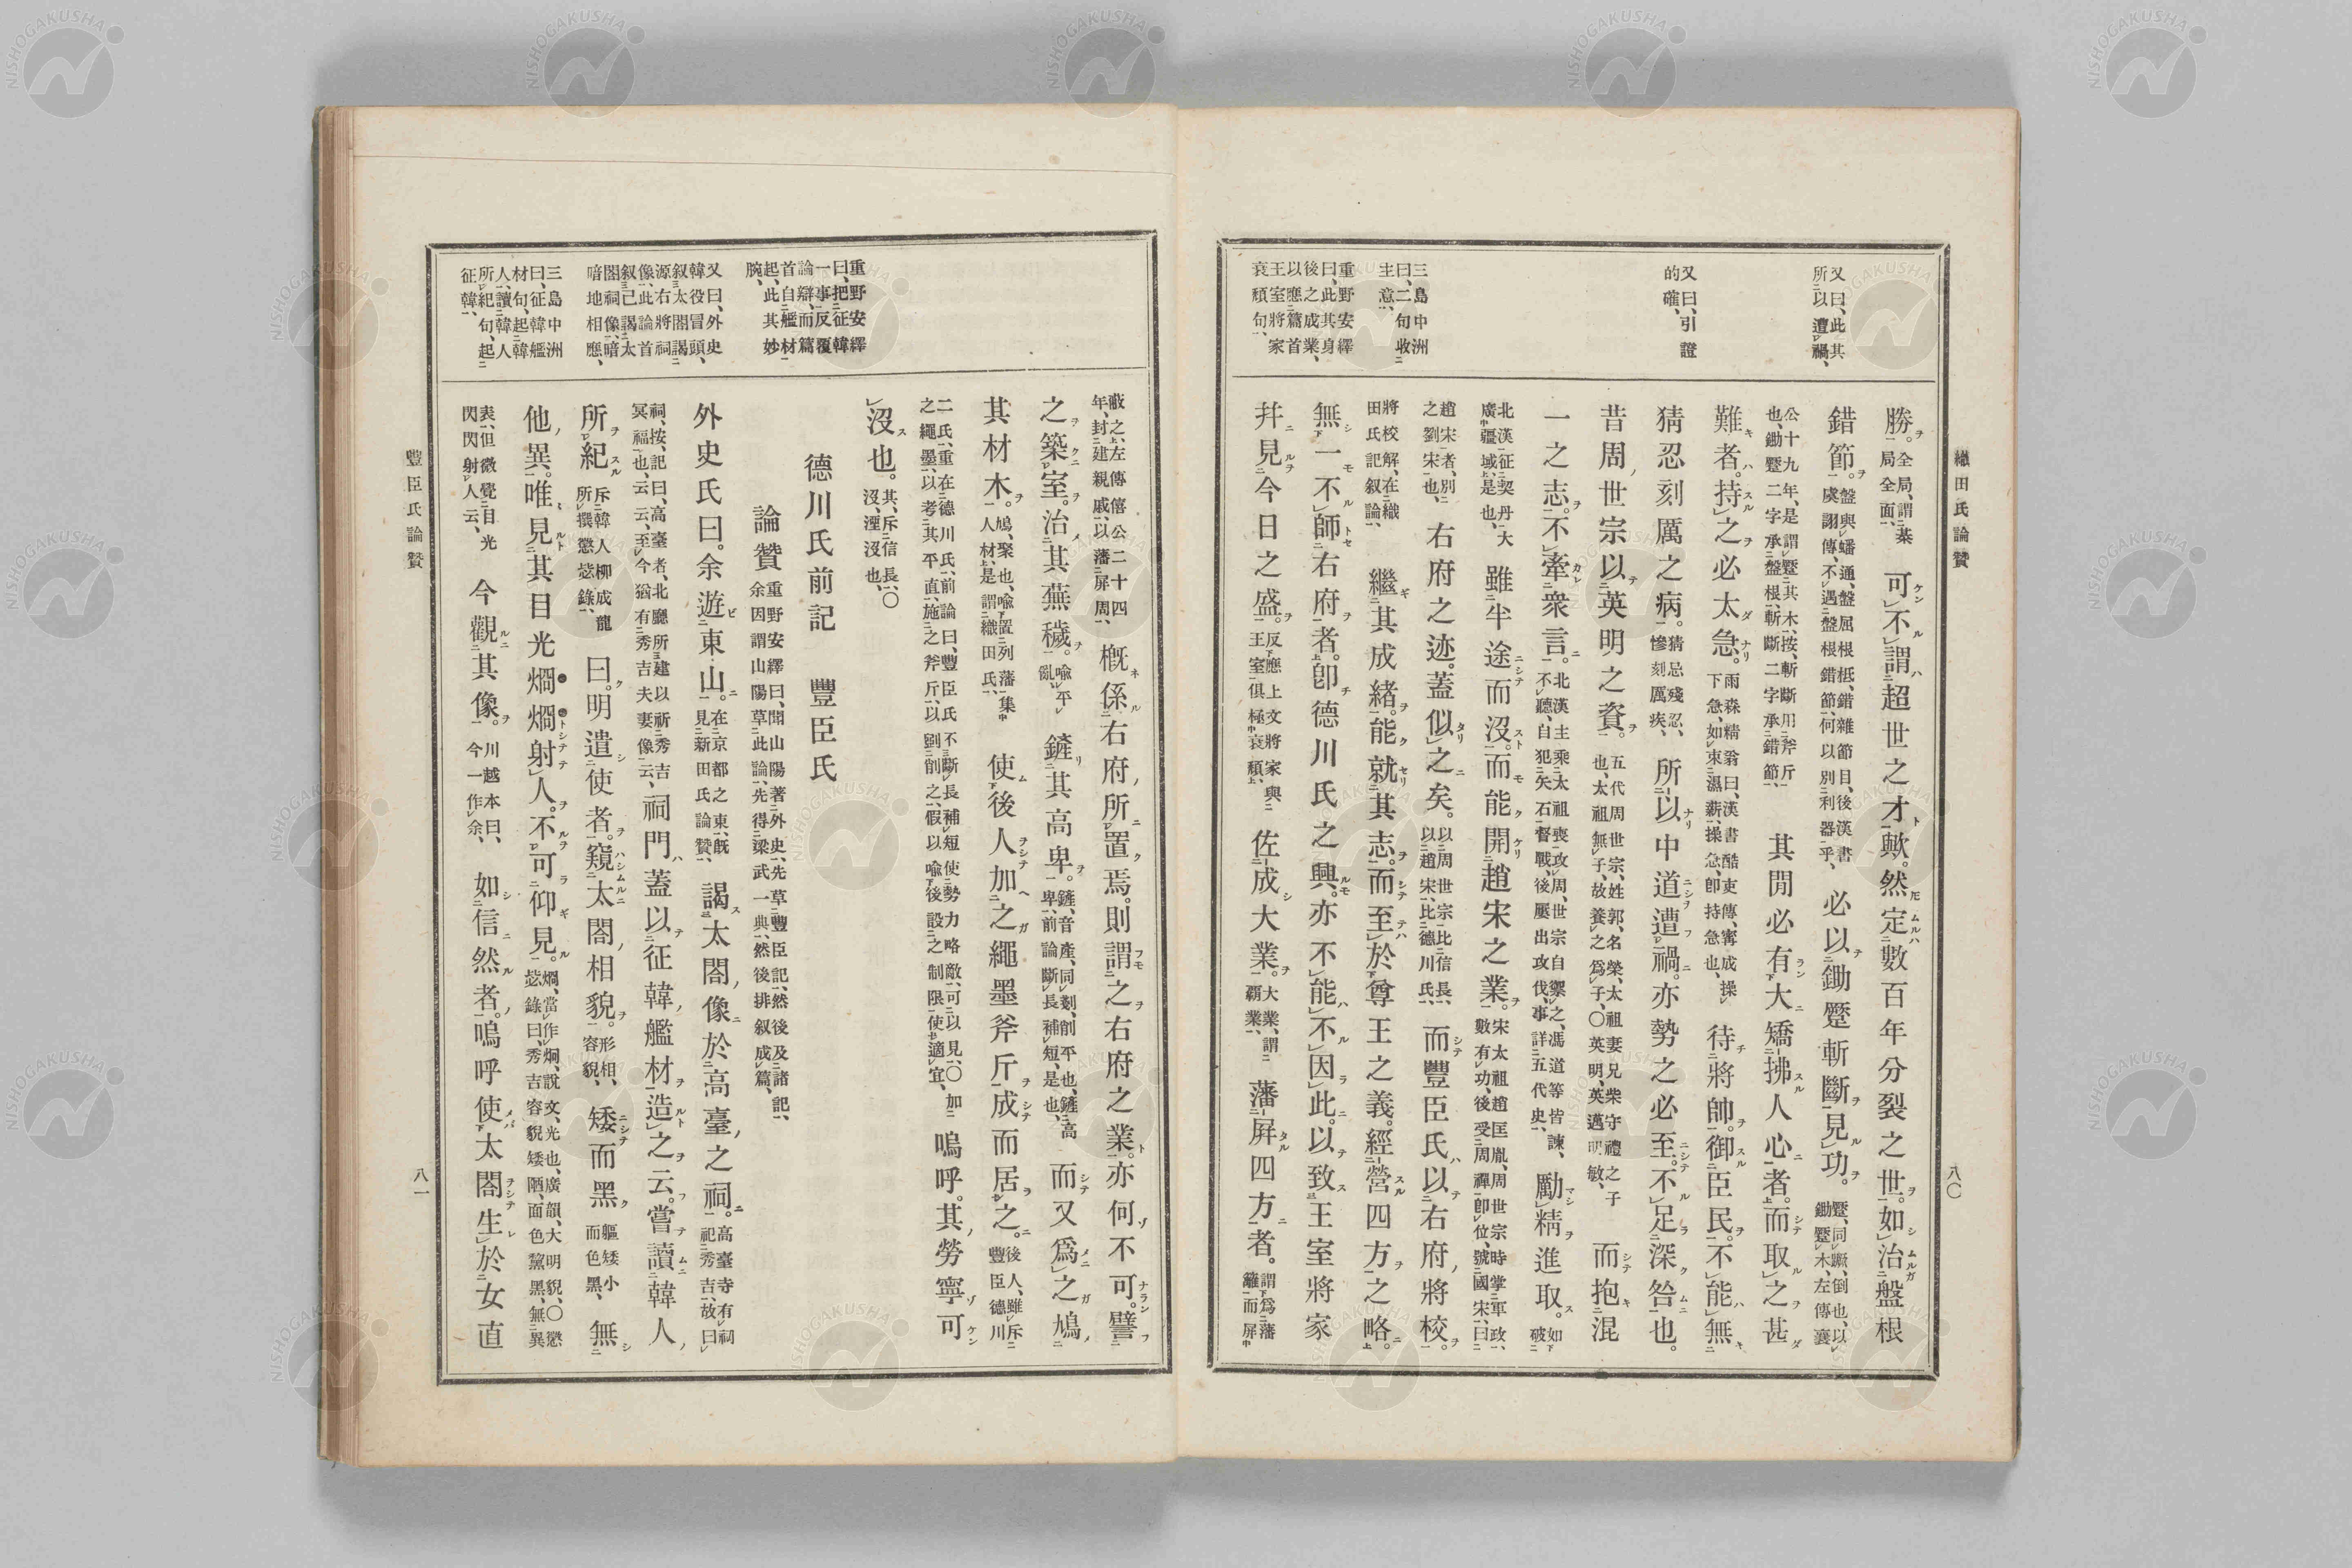 織田氏論贊
八〇
又曰、此其
所以遭禍、
又曰、引證
的確、
三島中洲
曰、二句收
主意、
重野安繹
曰、此其身
後之成業、
以應篇首
王室將家
衰頽句、
勝。全局、謂棊局全面、可不謂超世之才歟。然定數百年分裂之世。如治盤根
錯節。盤與蟠通、盤屈根柢、錯雜節目、後漢書虞詡傳、不遇盤根錯節、何以別利器乎、必以鋤蹷斬斷見功。蹷、同蹶、倒也、以鋤蹷木、左傳襄
公十九年、是謂蹷其木、按、斬斷用斧斤也、鋤蹷二字承盤根、斬斷二字承錯節、其閒必有大矯拂人心者。而取之甚
難者。持之必太急。雨森精翁曰、漢書酷吏傳、寗成操下急、如束濕薪、操急、卽持急也、操待將帥。御臣民。不能無
猜忍刻厲之病。猜忌殘忍、慘刻厲疾、所以中道遭禍。亦勢之必至。不足深咎也。
昔周世宗以英明之資。五代周世宗、姓郭、名榮、太祖妻兄柴守禮之子也、太祖無子、故養之爲子、〇英明、英邁明敏、而抱混
一之志。不牽衆言。北漢主乘太祖喪攻周、世宗自禦之、馮道等皆諫、不聽、自犯矢石督戰、後屢出攻伐、事詳五代史、勵精進取。如下破
北漢征契丹大廣疆域、是也、雖半途而沒。而能開趙宋之業。宋太祖趙匡胤、周世宗時掌軍政、數有功、後受周禪卽位、號國宋、曰
趙宋者、別之劉宋也、右府之迹。蓋似之矣。以周世宗比信長、以趙宋比德川氏、而豐臣氏以右府將校。
將校解、在織田氏記叙論、繼其成緒。能就其志。而至於尊王之義。經營四方之略。
無一不師右府者。卽德川氏之興。亦不能不因此。以致王室將家
幷見今日之盛。反應上文將家與王室俱極衰頽、佐成大業。大業、謂覇業、藩屏四方者。謂爲藩籬而屏
豐臣氏論贊
八一
重野安繹
曰、把征韓
一事反覆
論辯、而篇
首自艦材
起、此其妙
腕、
又曰、外史
韓役冒頭、
叙太閤謁
源右將祠
像、此論首
叙己謁太
閤祠像、暗
暗地相應、
三島中洲
曰、征韓艦
材句、起韓
人、讀韓人
所紀句、起
征韓、
蔽之、左傳僖公二十四年、封建親戚、以藩屏周、槪係右府所置焉。則謂之右府之業。亦何不可。譬
之築室。治其蕪穢。喩平亂、鏟其高卑。鏟、音產、同剗、削平也、鏟高卑、前論斷長補短、是也、而又爲之鳩
其材木。鳩、聚也、喩置列藩集人材、是謂織田氏、使後人加之繩墨斧斤成而居之。後人、雖斥豐臣德川
二氏、重在德川氏、前論曰、豐臣氏不斷長補短使勢力略敵、可以見、〇加之繩墨、以考其平直、施之斧斤、以劉削之、假以喩後設之制限使適宜、嗚呼。其勞寧可
沒也。其、斥信長、〇沒、湮沒也、
德川氏前記　豐臣氏
論贊　重野安繹曰、聞山陽著外史、先草豐臣記、然後及諸記、余因謂山陽草此論、先得梁武一典、然後排叙成篇、
外史氏曰。余遊東山。在京都之東、旣見新田氏論贊、謁太閤像於高臺之祠。高臺寺有祠祀秀吉、故曰
祠、按、記曰、高臺者、北廳所建以祈秀吉冥福也、云云、至今猶有秀吉夫妻像云、祠門蓋以征韓艦材造之云。嘗讀韓人
所紀斥韓人柳成龍所撰懲毖錄、曰。明遣使者。窺太閤相貌。形相、容貌、矮而黑軀矮小而色黑、無
他異。唯見其目光烱烱射人。不可仰見。烱、當作炯、說文、光也、廣韻、大明貌、〇懲毖錄曰、秀吉容貌矮陋、面色黧黑、無異
表、但微覺目光閃閃射人云、今觀其像。川越本曰、今一作余、如信然者。嗚呼使太閤生於女直